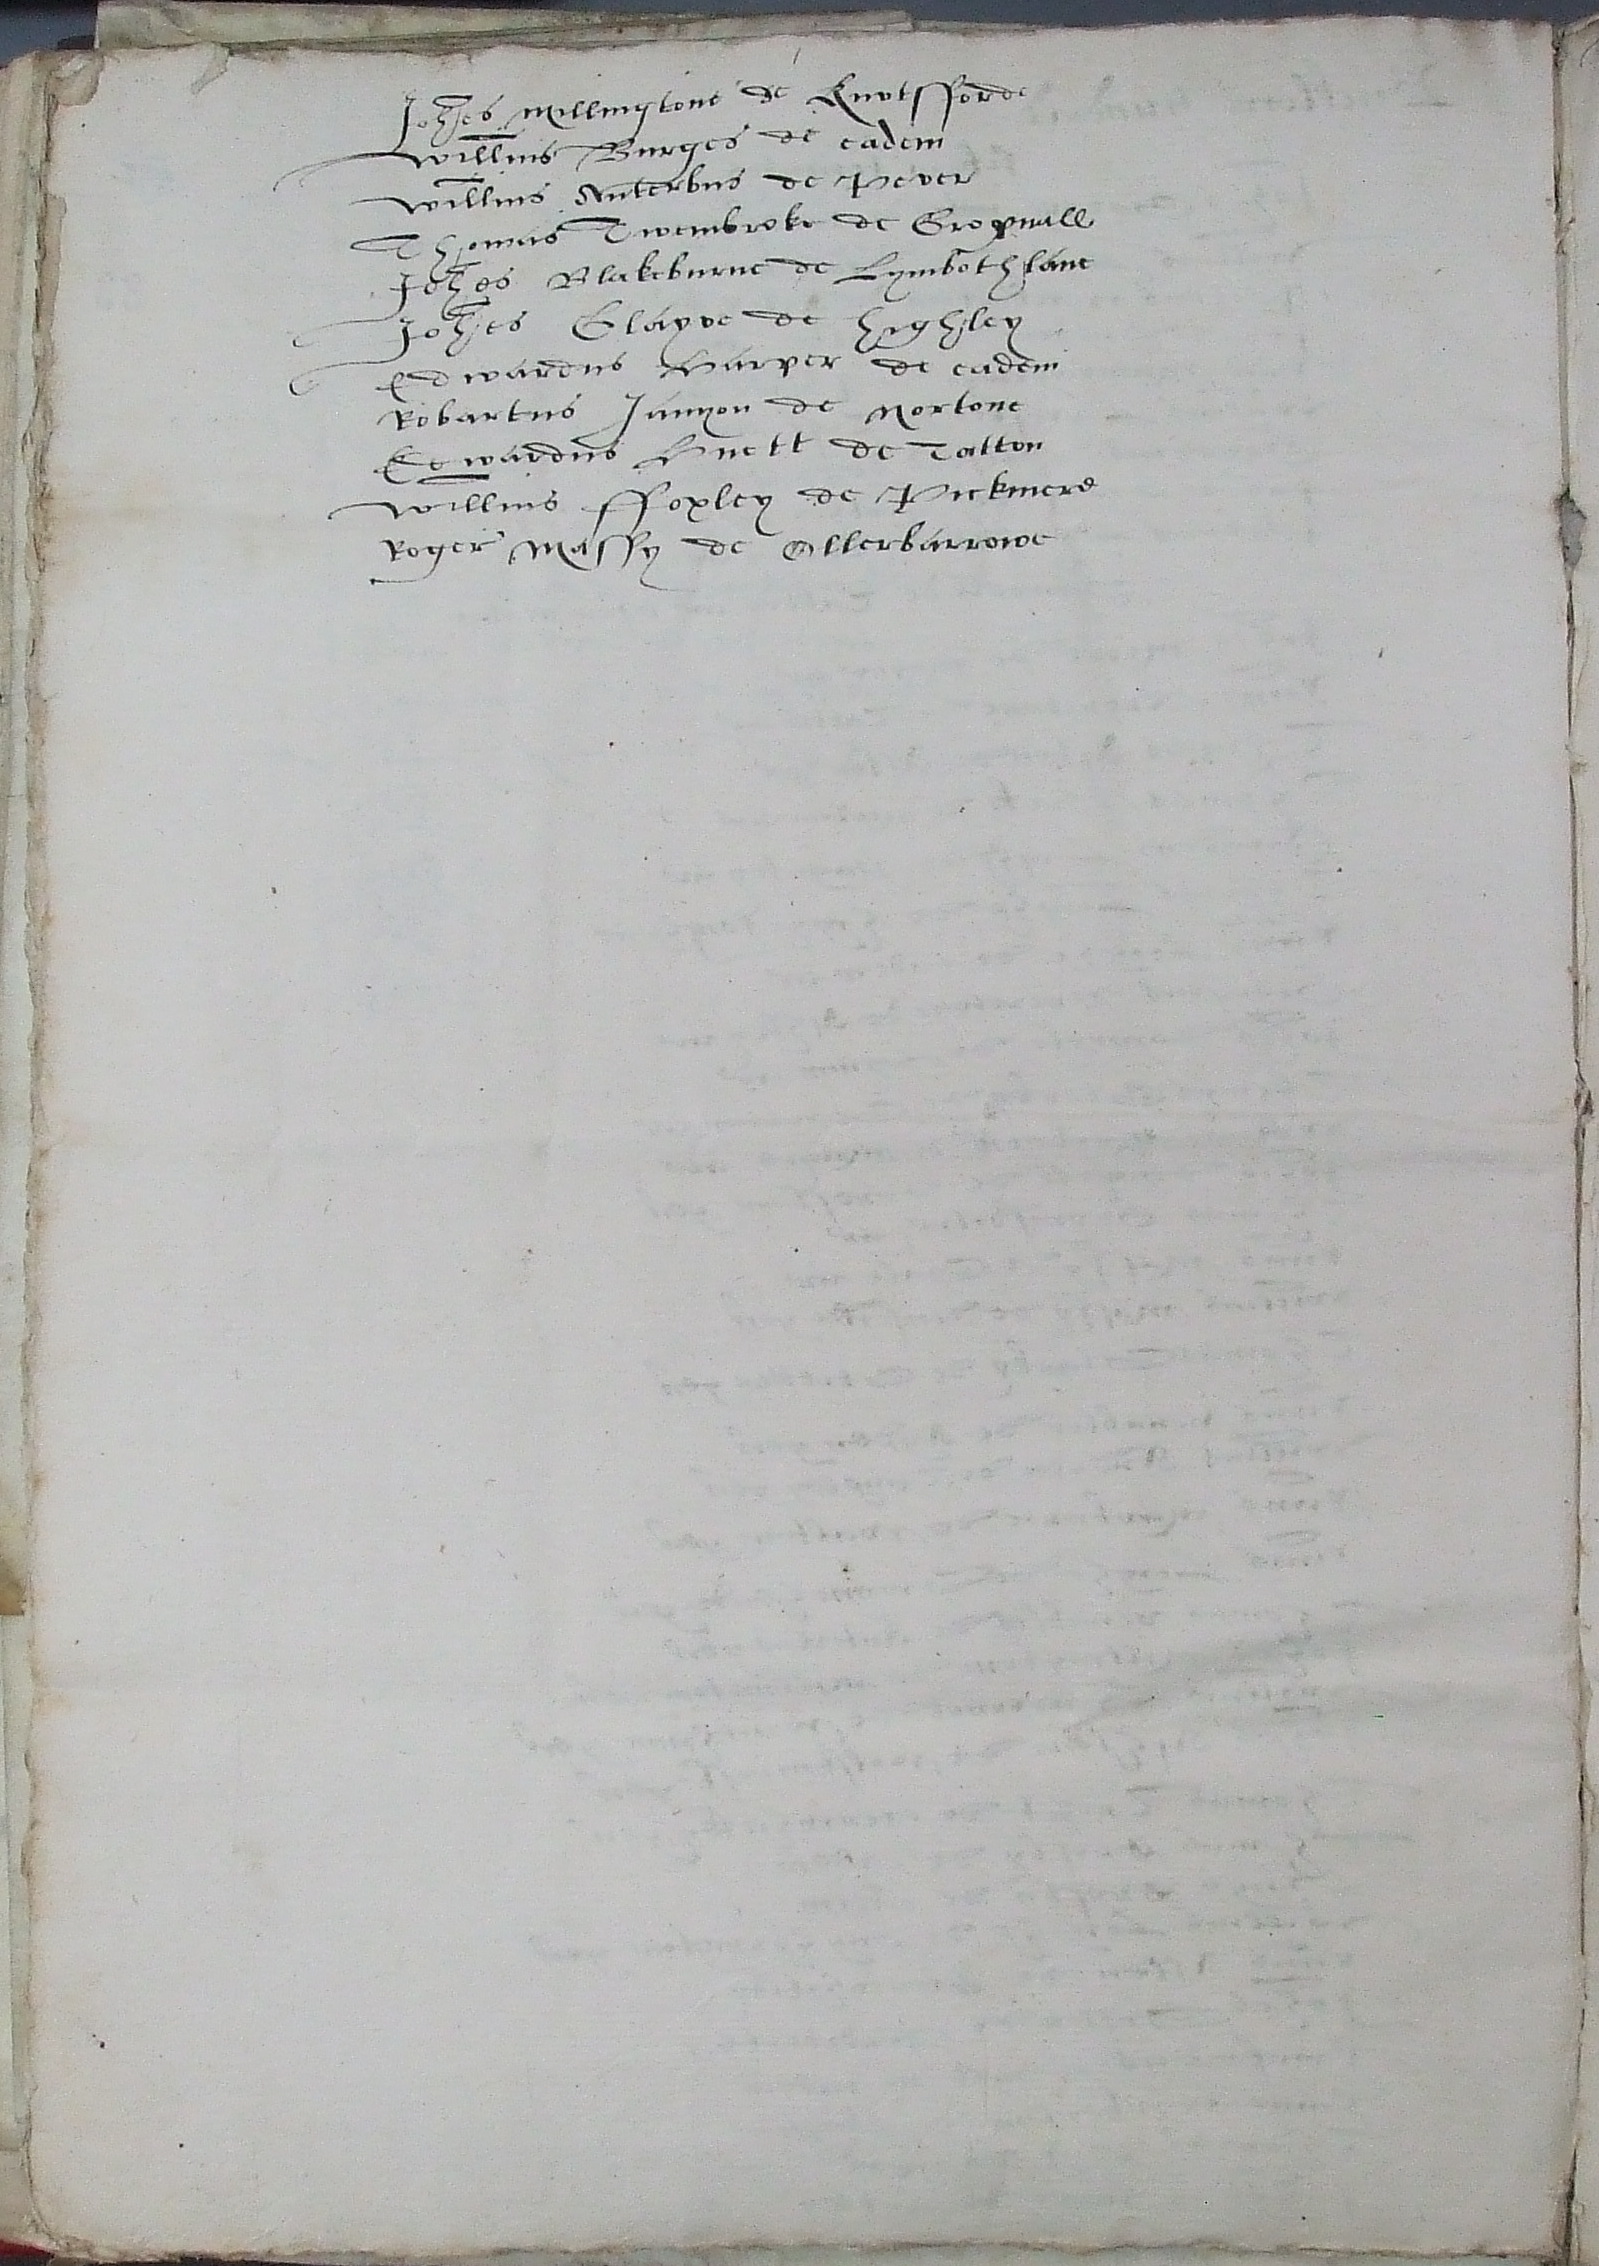 Joh̃es Millingtone de Knotsfforde
Will̃ms Burges de eadem
Will̃ms Anterbus de Pever
Thomas Twembroke de Gropnall
Joh̃es Blakeburne de Lymbothlane
Joh̃es Glayve de highley
Edwardus Harper de eadem
Robartus Janyon de Nortone
Edwardus Hnett de Tatton
Will̃ms ffoxley de Pickmere
Roger Massy de Ollerbarrowe